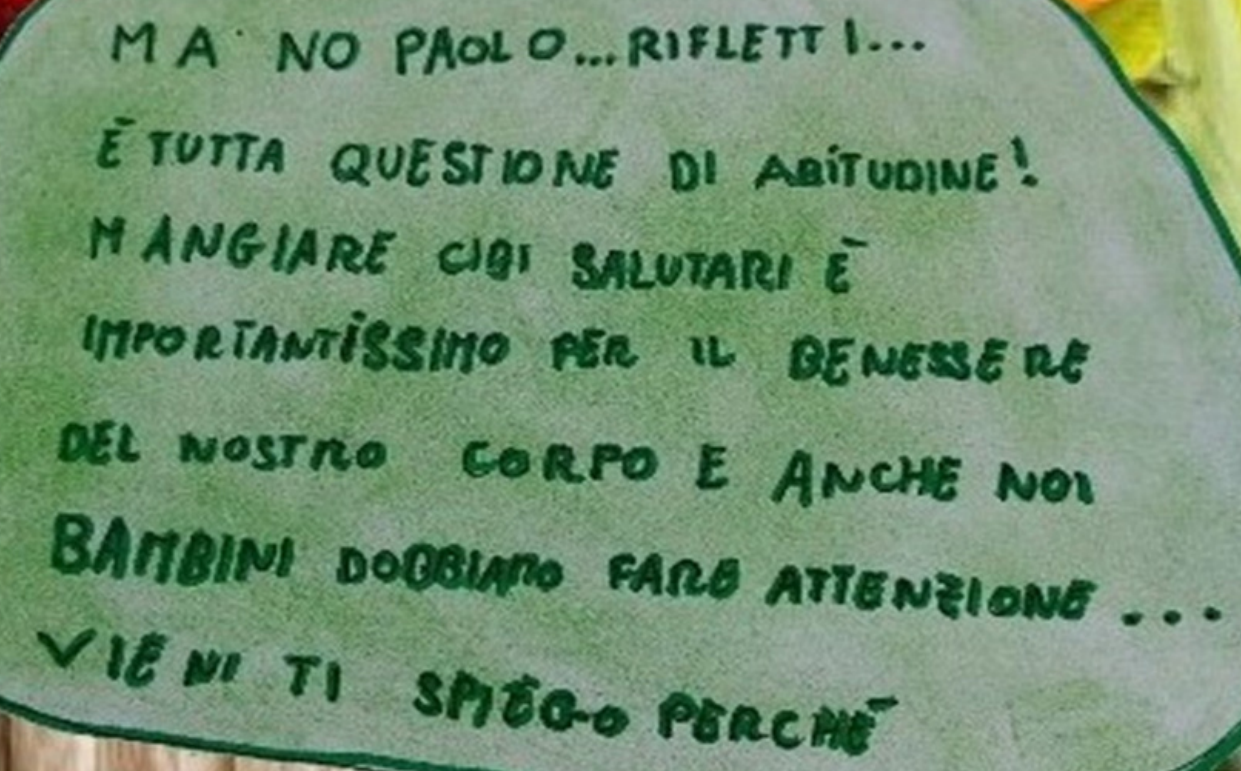 MA NO PAOLO...RIFLETTI...
È TUTTA QUESTIONE DI ABITUDINE!
MANGIARE CIBI SALUTARI È
IMPORTANTISSIMO PER IL BENESSERE
DEL NOSTRO CORPO E ANCHE NOI
BAMBINI DOBBIAMO FARE ATTENZIONE...
VIENI TI SPIEGO PERCHÉ